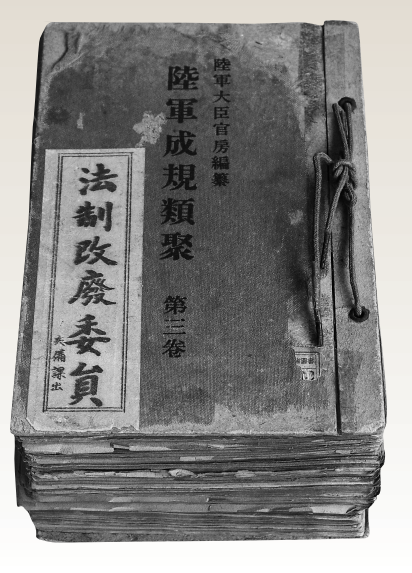 陸軍大臣官房編纂
陸軍成規類聚 第三卷
法制改廢委員